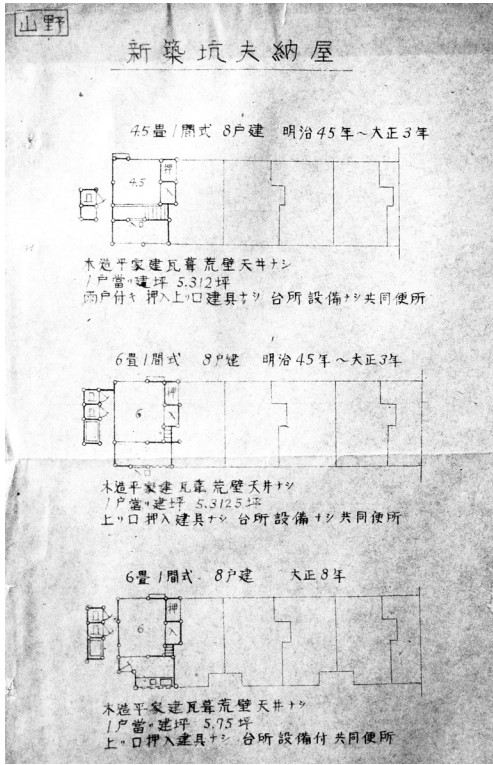 山野
新築坑夫納屋
4.5畳1間式 8戸建 明治45年～大正3年
4.5
押
入
木造平家建瓦葺荒壁天井ナシ
1戸當リ建坪 5.312坪
雨戸付キ 押入上リ口建具ナシ 台所設備ナシ共同便所
6畳1間式 8戸建 明治45年～大正3年
6
押
入
木造平家建瓦葺荒壁天井ナシ
1戸當リ建坪 5.3125坪
上リ口押入建具ナシ 台所設備ナシ共同便所
6畳1間式 8戸建 大正8年
6
押
入
木造平家建瓦葺荒壁天井ナシ
1戸當リ建坪 5.75坪
上リ口押入建具ナシ 台所設備付共同便所